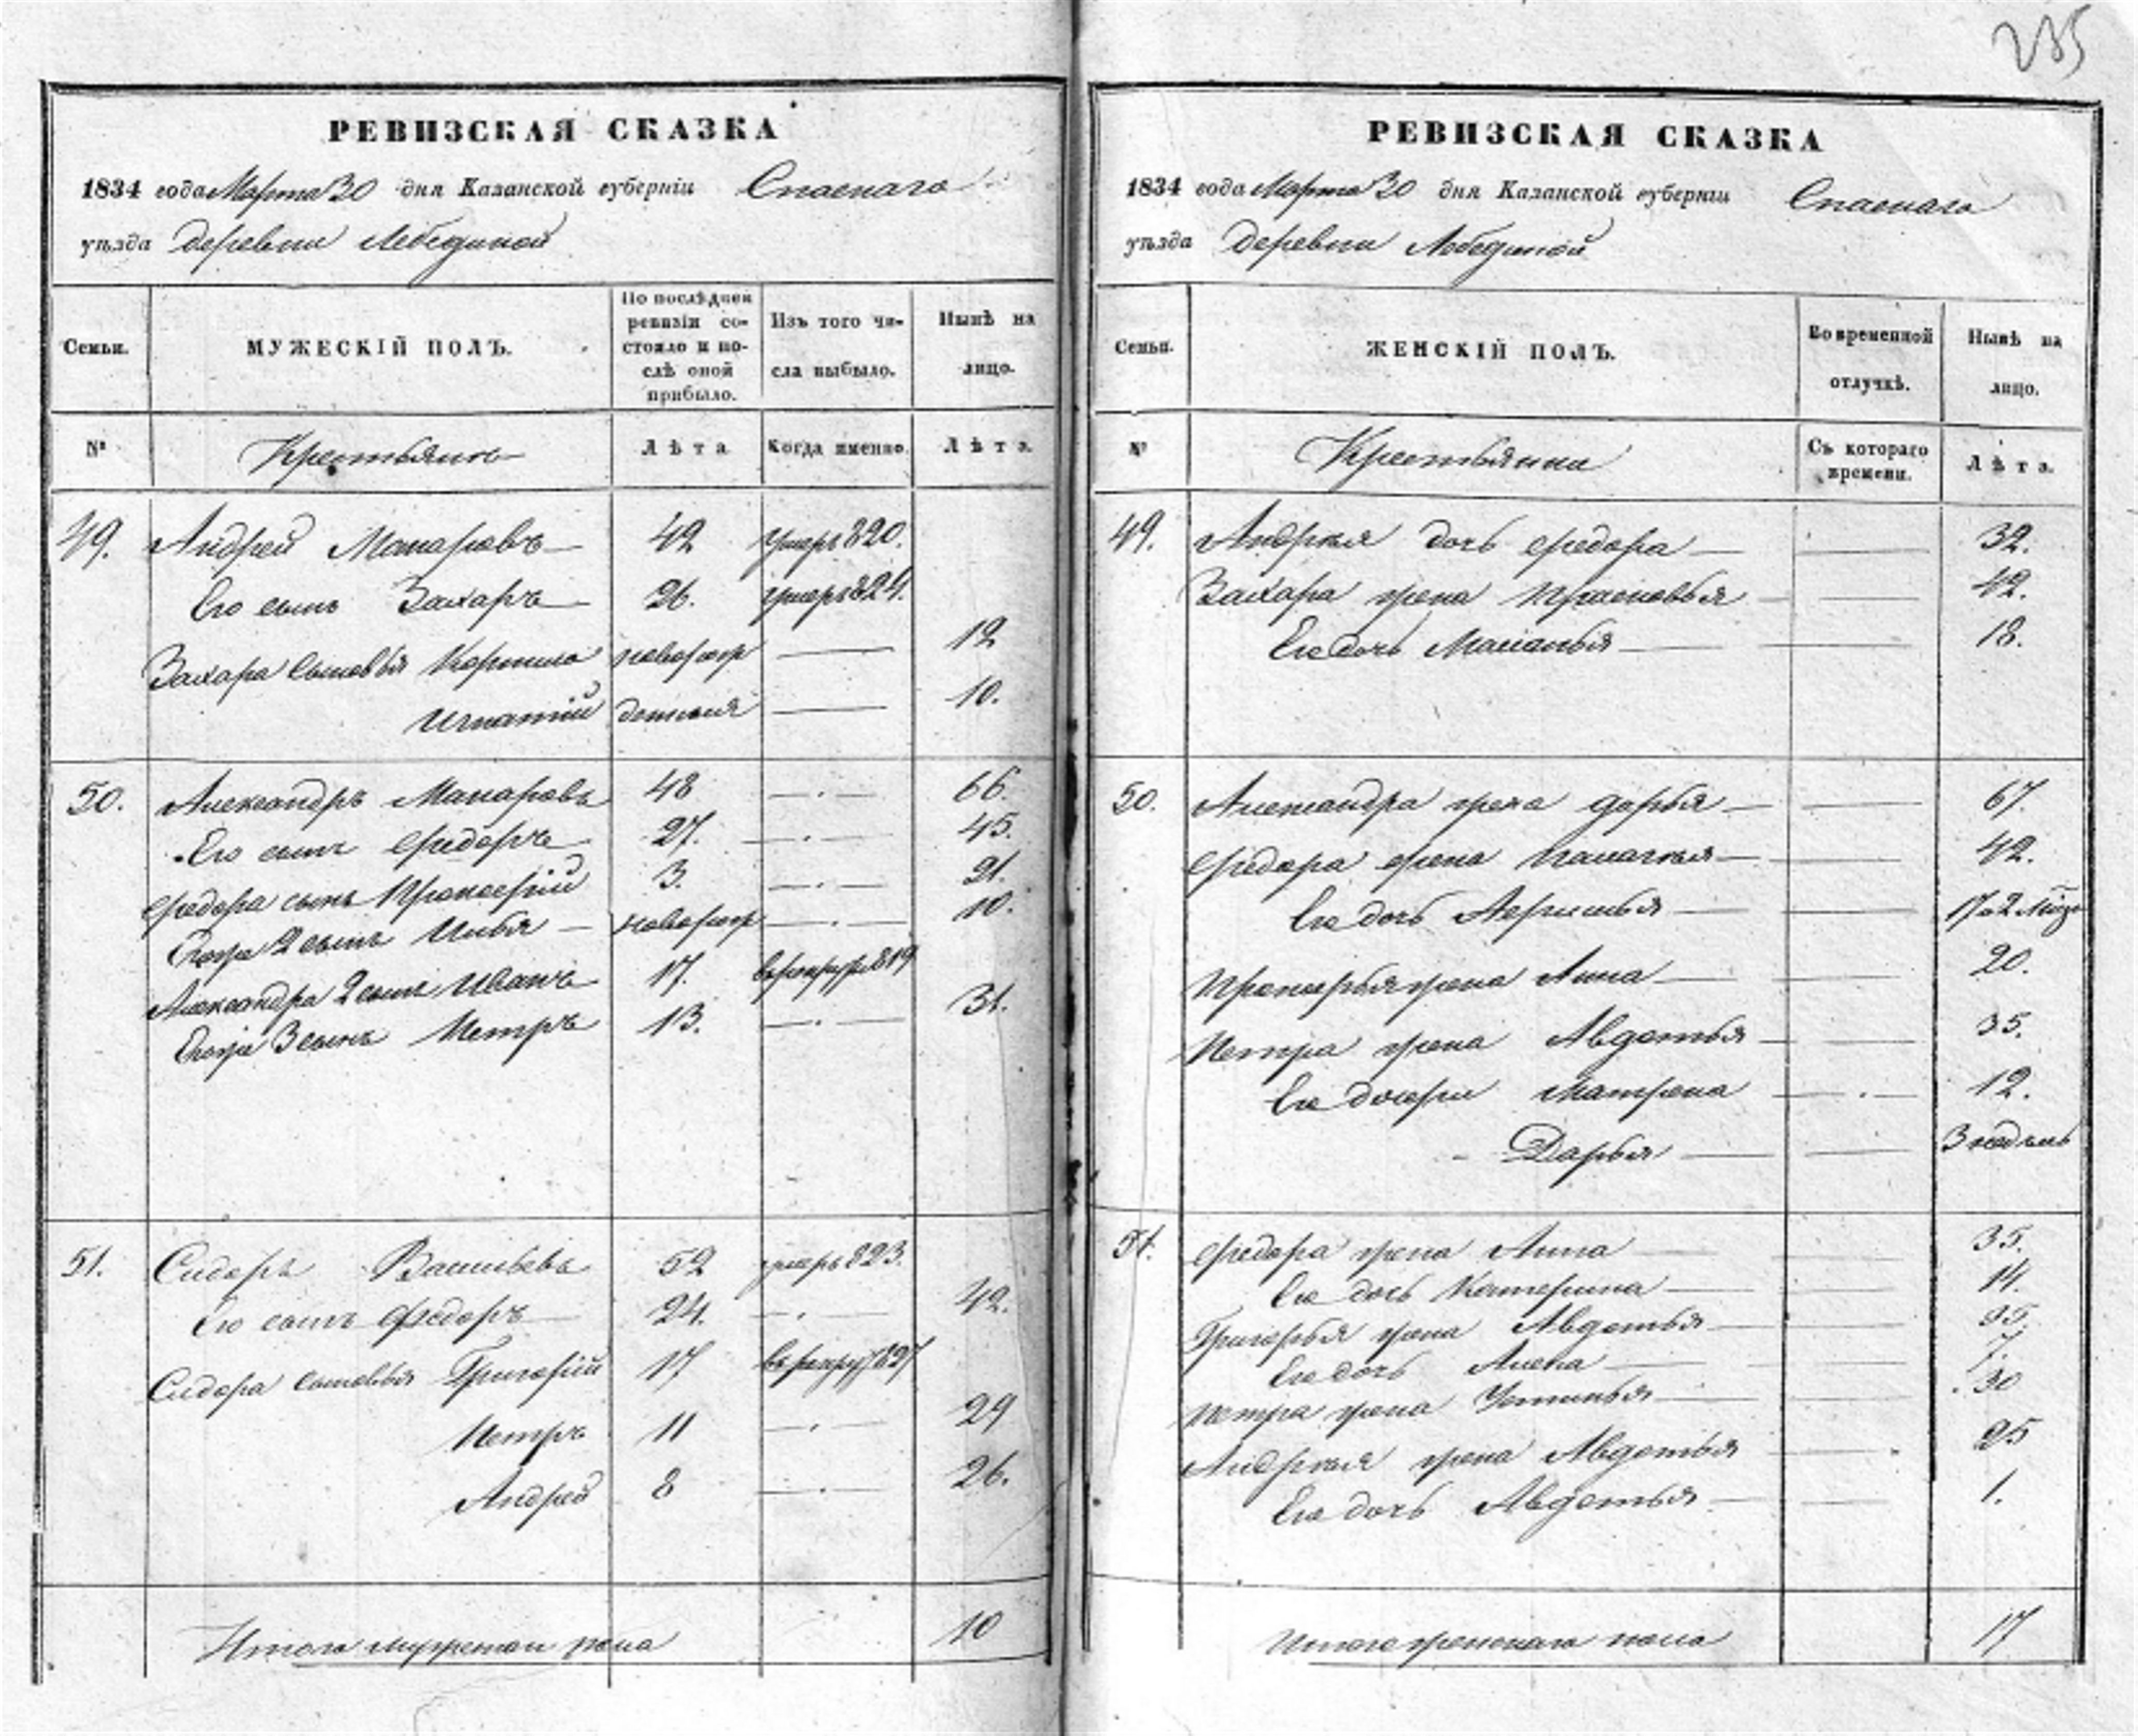 235
РЕВИЗСКАЯ СКАЗКА
1834 года Марта 30 дня Казанской губерніи Спаскаго
уѣзда деревни Лебединой
Семьи.
МУЖЕСКІЙ ПОЛЪ.
По послѣдней ревизіи со-
стояло и по-
слѣ оной
прибыло.
Изъ того чи-
сла выбыло.
Нынѣ на
лицо.
№
Крестьянъ
Лѣта
Когда именно.
Лѣта.
49. Андрей Макаровъ 42 умеръ 820.
Его сынъ Захаръ 26. умеръ 824.
Захара сыновья Корнило новорож 12
Игнатий 10.
50. Александръ Макаровъ 48 66.
Его сынъ Федоръ 27. 45.
Федора сынъ Прокофий 3. 21.
2 сынъ Илья новорож 10.
Александра 2 сынъ Иванъ 17. в рекруты 819
3 сынъ Петръ 13. 31.
51. Сидоръ Васильевъ 52 умеръ 823.
Его сынъ Федоръ 24. 42.
Сидора сыновья Григорий 17 в рекруты 827
Петръ 11 29
Андрей 8 26.
Итого мужеска пола 10
РЕВИЗСКАЯ СКАЗКА
1834 года Марта 30 дня Казанской губерніи Спаскаго
уѣзда деревни Лебединой
Семьи.
ЖЕНСКІЙ ПОЛЪ.
Во временной
отлучкѣ.
Нынѣ на
лицо.
№
Крестьянки
Съ котораго
времени.
Лѣта.
49. Андрея дочь Федора 32.
Захара жена Прасковья 42.
Ея дочь Маланья 18.
50. Александра жена Дарья 67.
Федора жена Палагея 42.
Ея дочь 17 и 2
Прокофья жена Анна 20.
Петра жена Авдотья 35.
Ея дочери Матрена 12.
Дарья 3 недель
51. Федора жена Анна 35.
Ея дочь Катерина 14.
Григорья жена Авдотья 35.
Ея дочь Алена 7.
Петра жена Устинья 30
Андрея жена Авдотья 25
Ея дочь Авдотья 1.
Итого женскаго пола 17